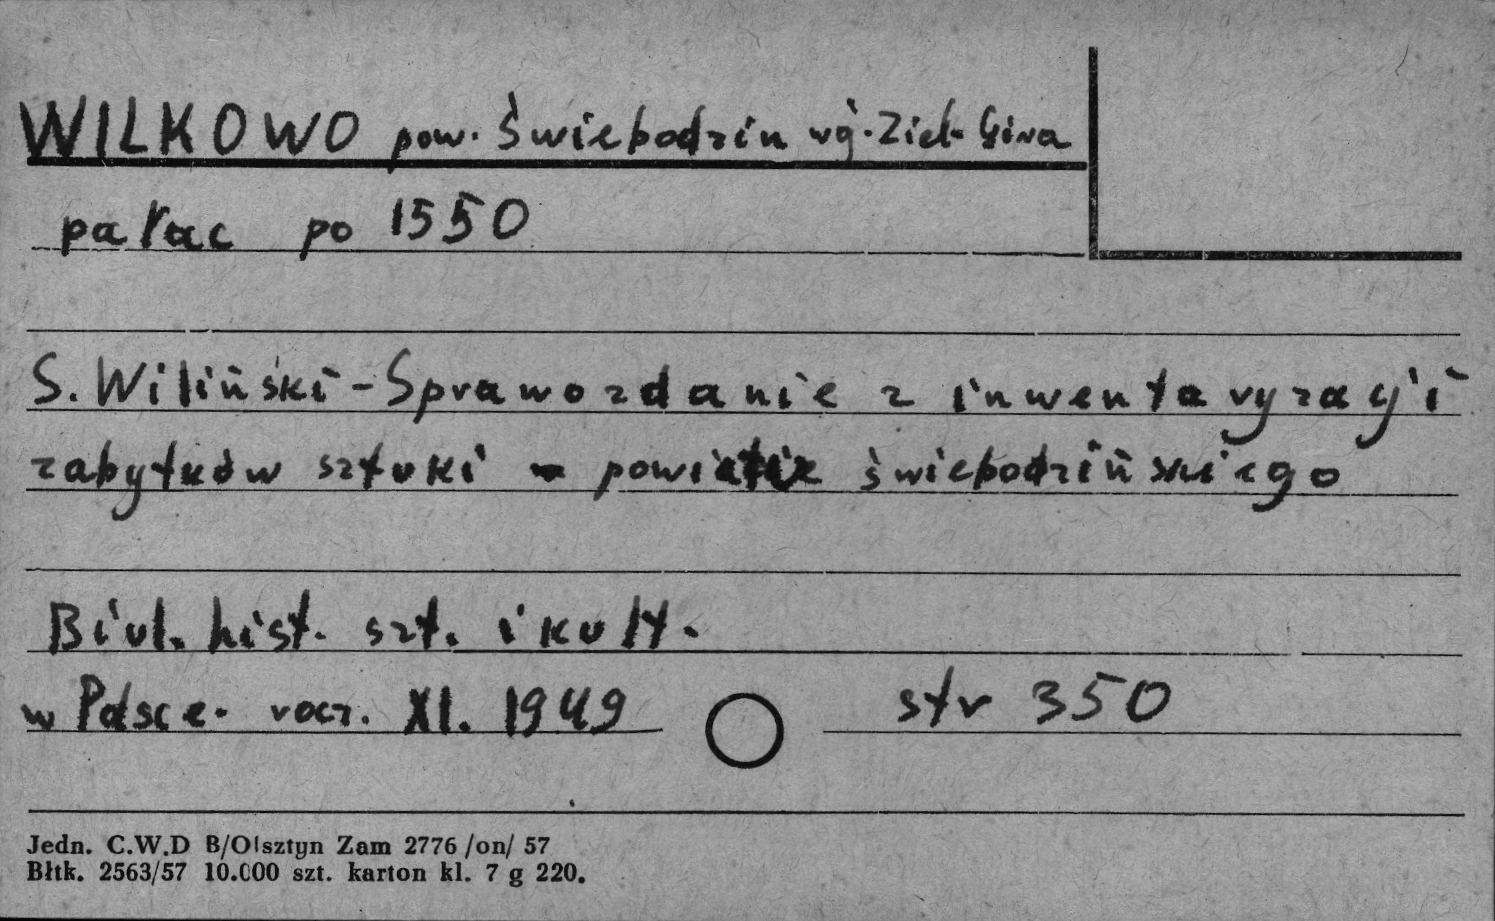 WILKOWO pow. Świebodzin wj. Ziel. Góra
pałac po 1550
S. Wiliński - Sprawozdanie z inwentaryzacji
zabytków sztuki powiatu świebodzińskiego
Biul. hist. szt. i kult.
w Polsce. rocz. XI. 1949 str 350
Jedn. C.W.D B/Olsztyn Zam 2776 /on/ 57
Błtk. 2563/57 10.000 szt. karton kl. 7 g 220.